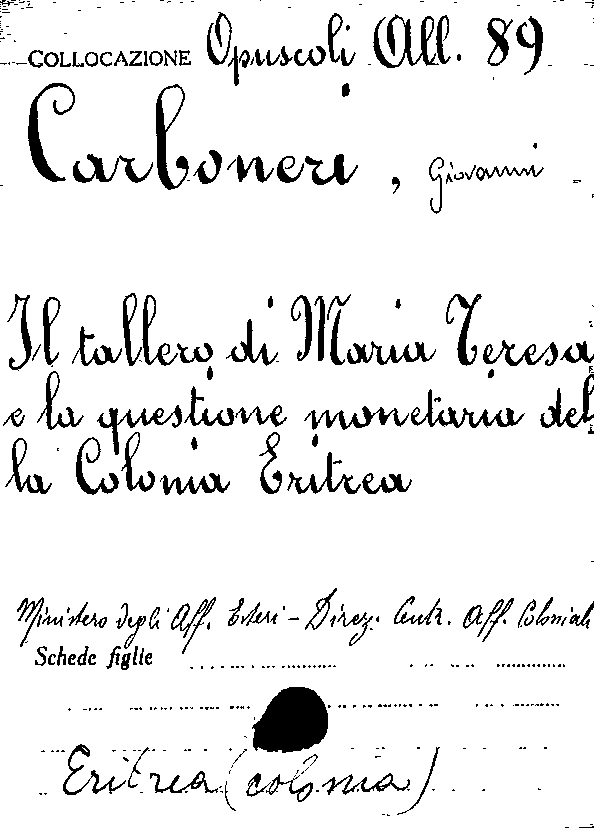 COLLOCAZIONE Opuscoli All. 89
Carboneri, Giovanni
Il tallero di Maria Teresa
e la questione monetaria del
la Colonia Eritrea
Ministero degli Aff. Esteri - Direz. Centr. Aff. Coloniali
Schede figlie
Eritrea (colonia)